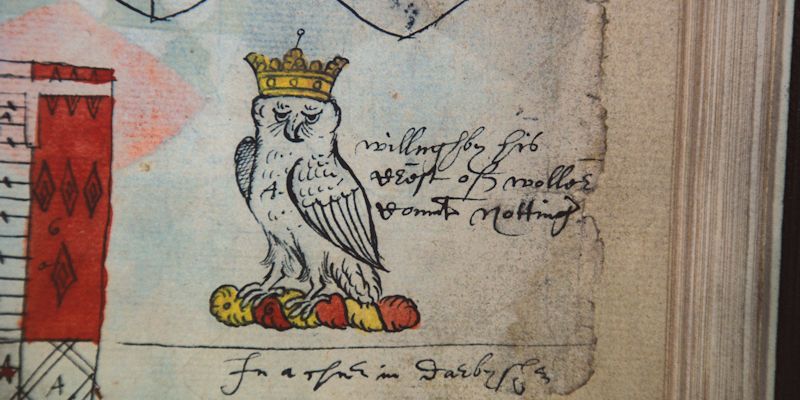 A.
willughby his
crest off woller
comit Notting
G
In a in darbysher
A